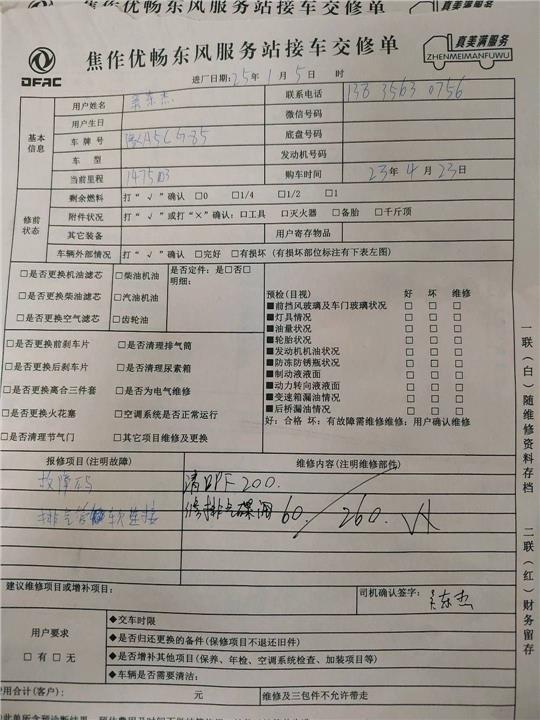 焦作优畅东风服务站接车交修单
DFAC
真美满服务
ZHENMEIMANFUWU
进厂日期:25年1月5日 时
基本信息
用户姓名
联系电话 138 3563 0756
用户生日
微信号码
车牌号
底盘号码
车型
发动机号码
当前里程 147513
购车时间 23年4月23日
修前状态
剩余燃料 打“√”确认 □0 □1/4 □1/2 □1
附件状况 打“√”或打“×”确认:□工具 □灭火器 □备胎 □千斤顶
其它装备 用户寄存物品
车辆外部情况 打“√”确认 □完好 □有损坏 (有损坏部位标注有下表左图)
□是否更换机油滤芯 □柴油机油
□是否更换柴油滤芯 □汽油机油
□是否更换空气滤芯 □齿轮油
是否定件: 是□否□
明细:
□是否更换前刹车片 □是否清理排气筒
□是否更换后刹车片 □是否清理尿素箱
□是否更换离合三件套 □是否为电气维修
□是否更换火花塞 □空调系统是否正常运行
□是否清理节气门 □其它项目维修及更换
预检(目视) 好 坏 维修
■前挡风玻璃及车门玻璃状况 □ □ □
■灯具情况 □ □ □
■油量状况 □ □ □
■轮胎状况 □ □ □
■发动机机油状况 □ □ □
■防冻防锈瓶状况 □ □ □
■制动液液面 □ □ □
■动力转向液液面 □ □ □
■变速箱漏油情况 □ □ □
■后桥漏油情况 □ □ □
好: 合格 坏: 有故障需维修维修: 用户确认维修
报修项目(注明故障) 维修内容(注明维修部件)
故障码 清DPF 200.
排气管软连接 修排气碟阀 60. 260.
建议维修项目或增补项目:
司机确认签字:
用户要求
□有□无
◆交车时限
◆是否归还更换的备件(保修项目不退还旧件)
◆是否增补其他项目(保养、年检、空调系统检查、加装项目等)
◆车辆是否需要清洁:
用合计(客户): 元 维修及三包件不允许带走
一联(白)随维修资料存档
二联(红)财务留存